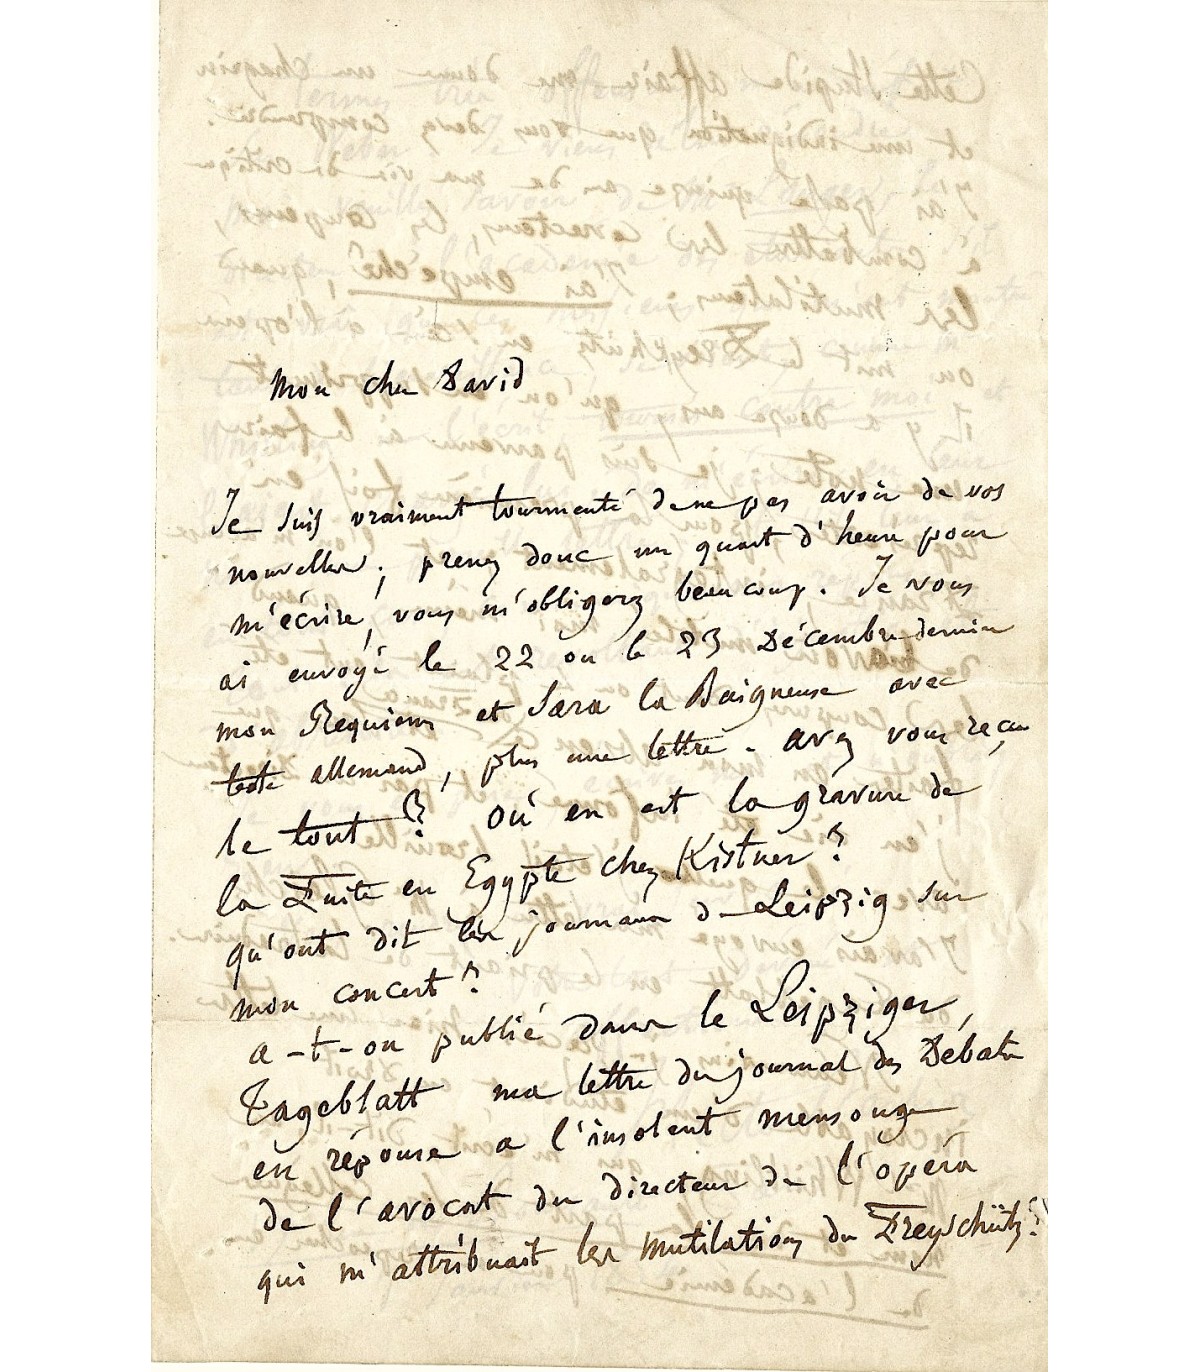 Mon cher David
Je suis vraiment tourmenté de ne pas avoir de vos
nouvelles; prenez donc un quart d'heure pour
m'écrire, vous m'obligerez beaucoup. Je vous
ai envoyé le 22 ou le 23 Décembre dernier
mon Requiem et Sara la Baigneuse avec
texte allemand, plus une lettre. avez vous reçu
le tout? où en est la gravure de
la Fuite en Egypte chez Kistner?
qu'ont dit les journaux de Leipzig sur
mon concert?
a-t-on publié dans le Leipziger,
Tageblatt ma lettre du journal des Débats
en réponse a l'insolent mensonge
de l'avocat du directeur de l'opéra
qui m'attribuait les mutilations du Freyschütz?